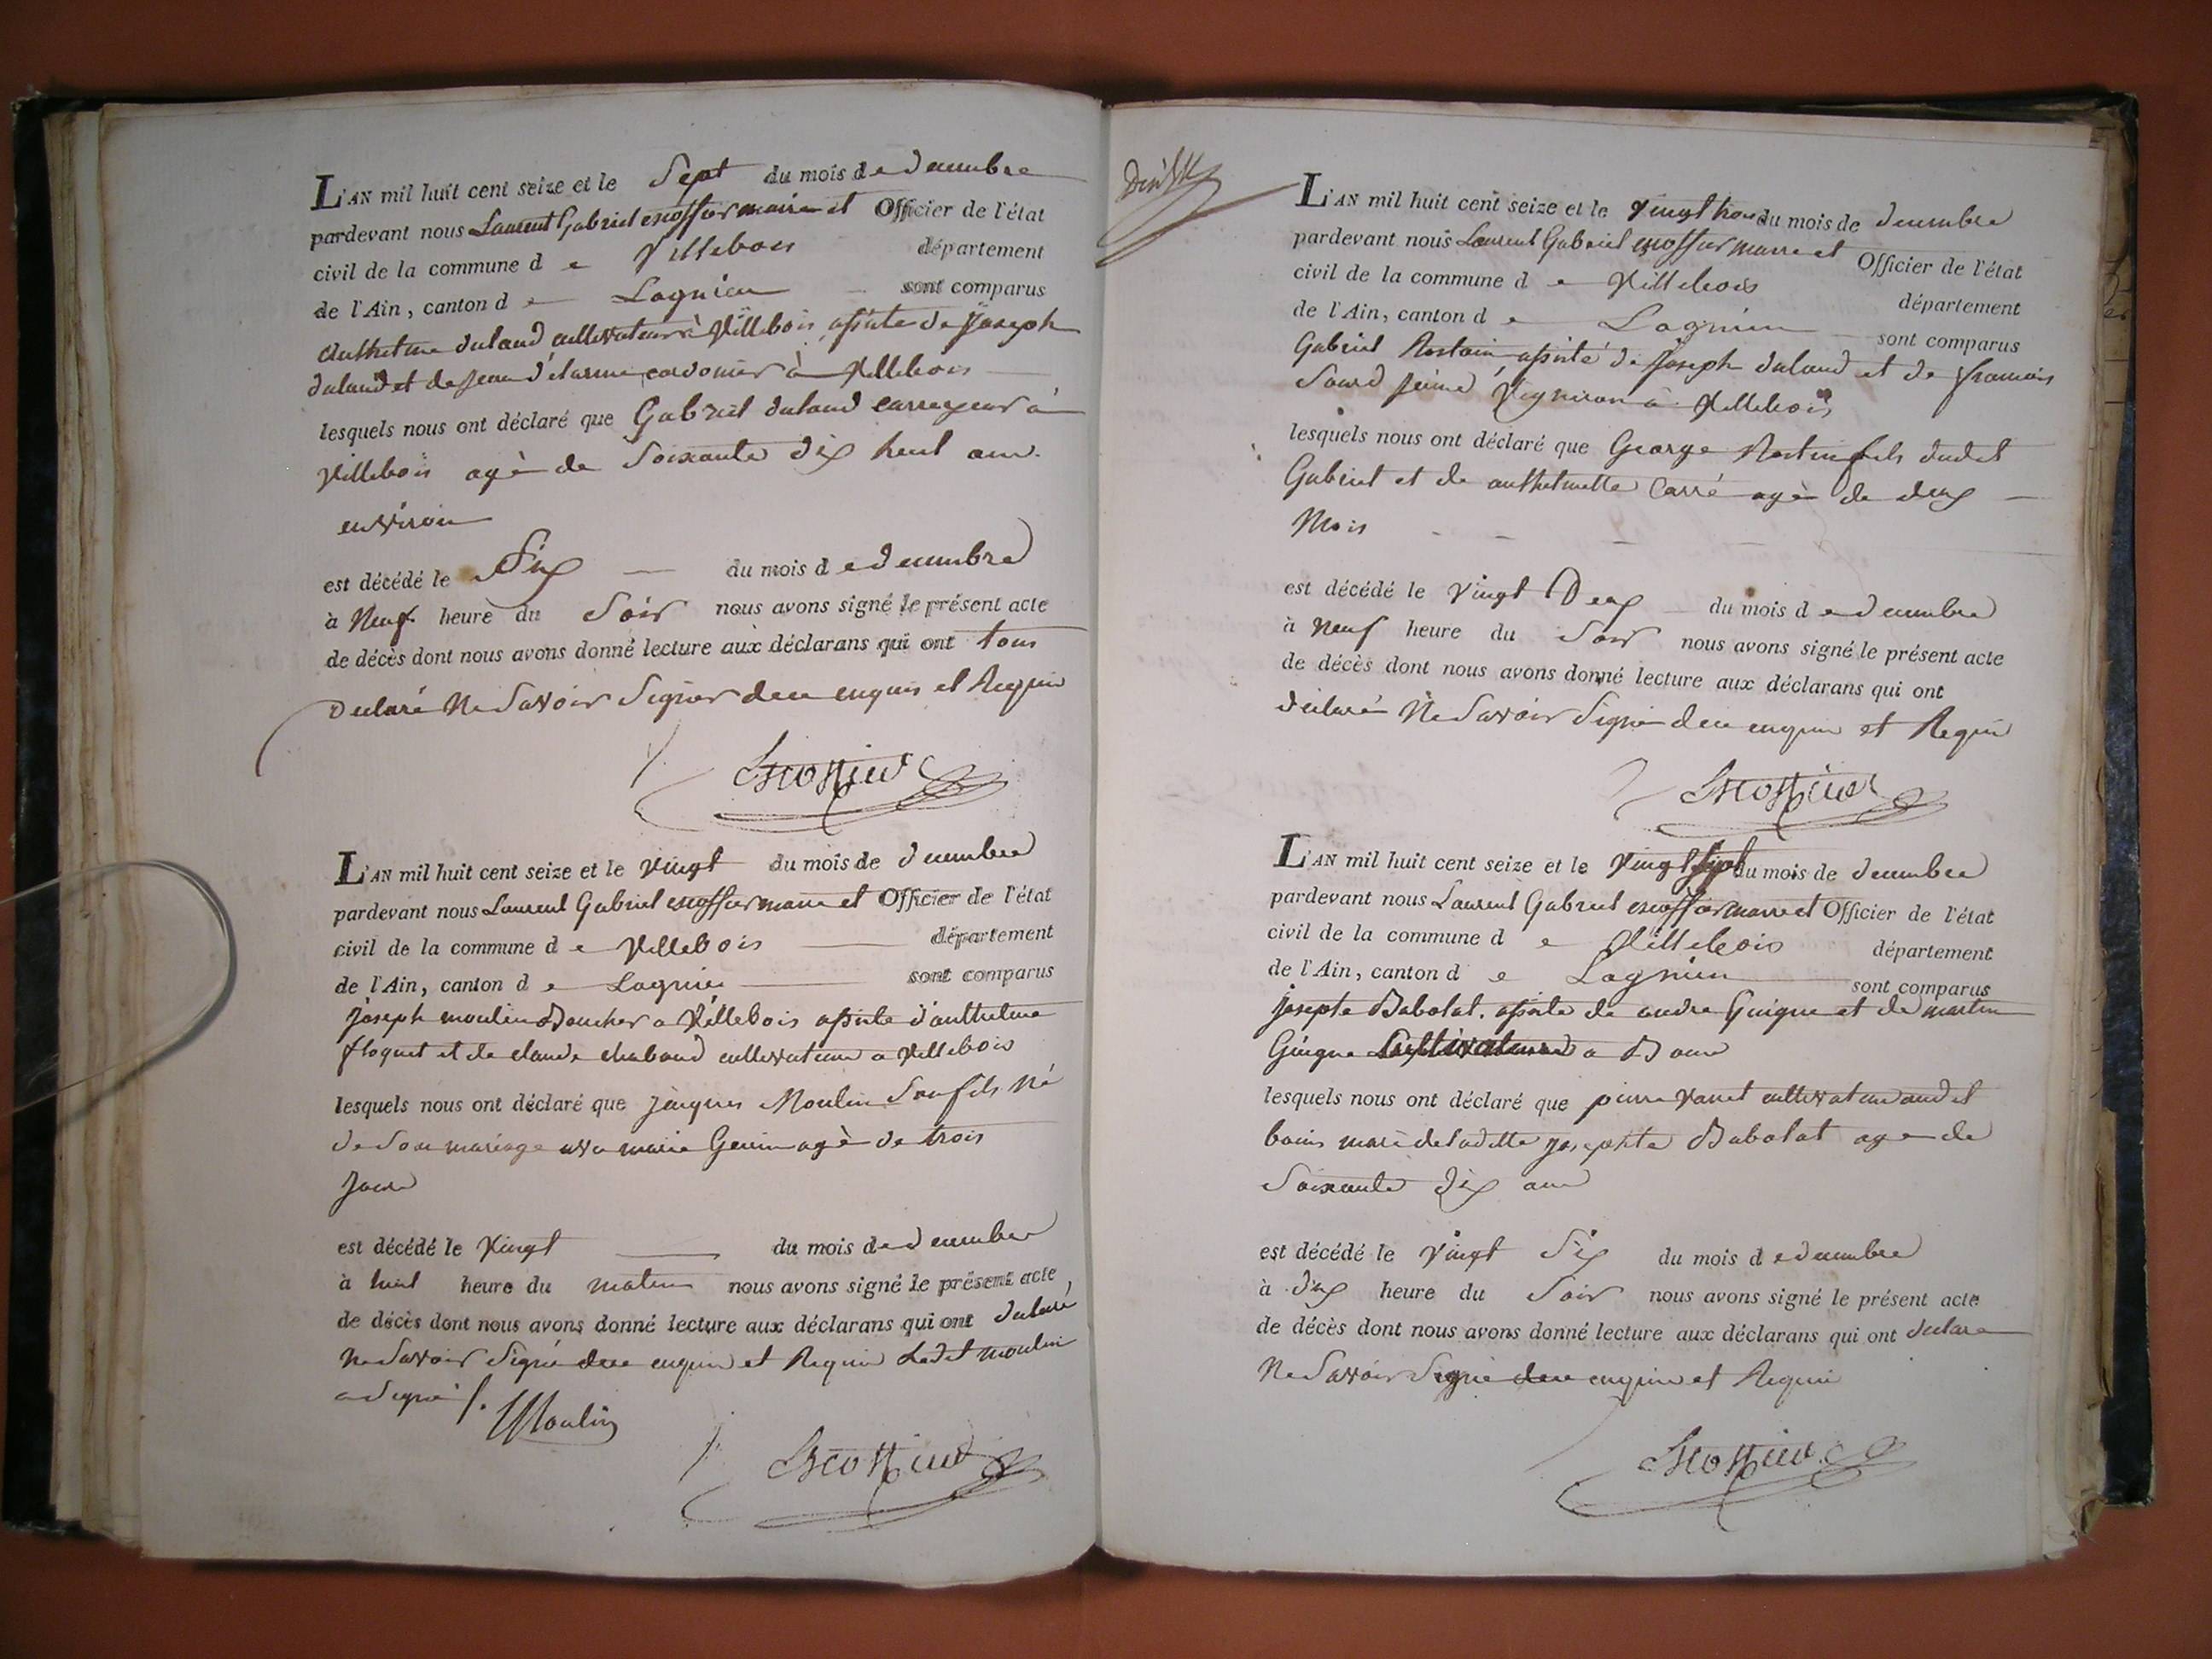 L'AN mil huit cent seize et le Sept du mois de decembre
pardevant nous Laurent Gabriel escoffier maire et Officier de l'état
civil de la commune d e Villebois département
de l'Ain, canton d e Lagnieu sont comparus
Anthelme dulaud cultivateur à Villebois, assisté de Joseph
dulaud et de Jean cordonier à Villebois
lesquels nous ont déclaré que Gabriel dulaud à
Villebois agè de Soixante dix huit ans
environ
est décédé le Six du mois d e decembre
à Neuf heure du Soir nous avons signé le présent acte
de décès dont nous avons donné lecture aux déclarans qui ont tous
Declaré Ne Savoir Signer de ce enquis et Requis
Escoffier
L'AN mil huit cent seize et le vingt du mois de decembre
pardevant nous Laurent Gabriel escoffier maire et Officier de l'état
civil de la commune d e Villebois département
de l'Ain, canton d e Lagnieu sont comparus
joseph moulin Boucher a Villebois assisté d'anthelme
floquet et de claude chaboud cultivateur a Villebois
lesquels nous ont déclaré que jacques Moulin Son fils Né
de Son mariage avec marie Genin agè de trois
jours
est décédé le Vingt du mois de decembre
à huit heure du matin nous avons signé le présent acte,
de décès dont nous avons donné lecture aux déclarans qui ont declaré
Ne Savoir Signé de ce enquis et Requis Ledit moulin
a Signé
Moulin
Escoffier
L'AN mil huit cent seize et le Vingt trois du mois de decembre
pardevant nous Laurent Gabriel escoffier maire et Officier de l'état
civil de la commune d e Villebois département
de l'Ain, canton d e Lagnieu sont comparus
Gabriel Rostain, assisté de Joseph dulaud et de francois
Sourd jeune Vigneron à Villebois
lesquels nous ont déclaré que George fils dudit
Gabriel et de anthelmette Carré agè de deux
Mois
est décédé le Vingt Deux du mois d e decembre
à Neuf heure du Soir nous avons signé le présent acte
de décès dont nous avons donné lecture aux déclarans qui ont
declaré Ne Savoir Signé de ce enquis et Requis
Escoffier
L'AN mil huit cent seize et le Vingt Sept du mois de decembre
pardevant nous Laurent Gabriel escoffier maire et Officier de l'état
civil de la commune d e Villebois département
de l'Ain, canton d e Lagnieu sont comparus
josepte Babolat. assisté de andre Guigue et de martin
Guigue Cultivateurs a Bouis
lesquels nous ont déclaré que pierre cultivateur audit
bouis mari de ladite josephte Babolat age de
Soixante dix ans
est décédé le Vingt Six du mois d e decembre
à dix heure du Soir nous avons signé le présent acte
de décès dont nous avons donné lecture aux déclarans qui ont declare
Ne Savoir Signé de ce enquis et Requis
Escoffier